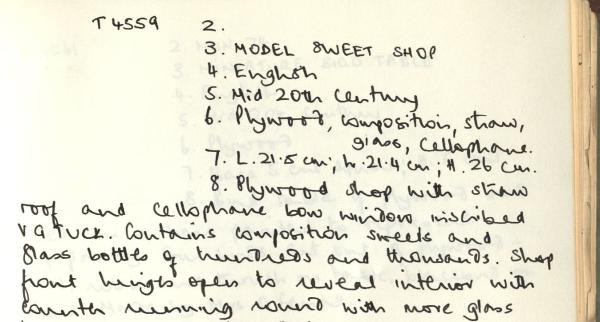 T4559 2.
3. MODEL SWEET SHOP
4. English
5. Mid 20th Century
6. Plywood, composition, straw,
glass, cellophane.
7. L. 21.5 cm; W. 21.4 cm; H. 26 cm.
8. Plywood shop with straw
roof and cellophane bow window inscribed
VG TUCK. Contains composition sweets and
glass bottles of hundreds and thousands. Shop
front hinges open to reveal interior with
counter running round with more glass